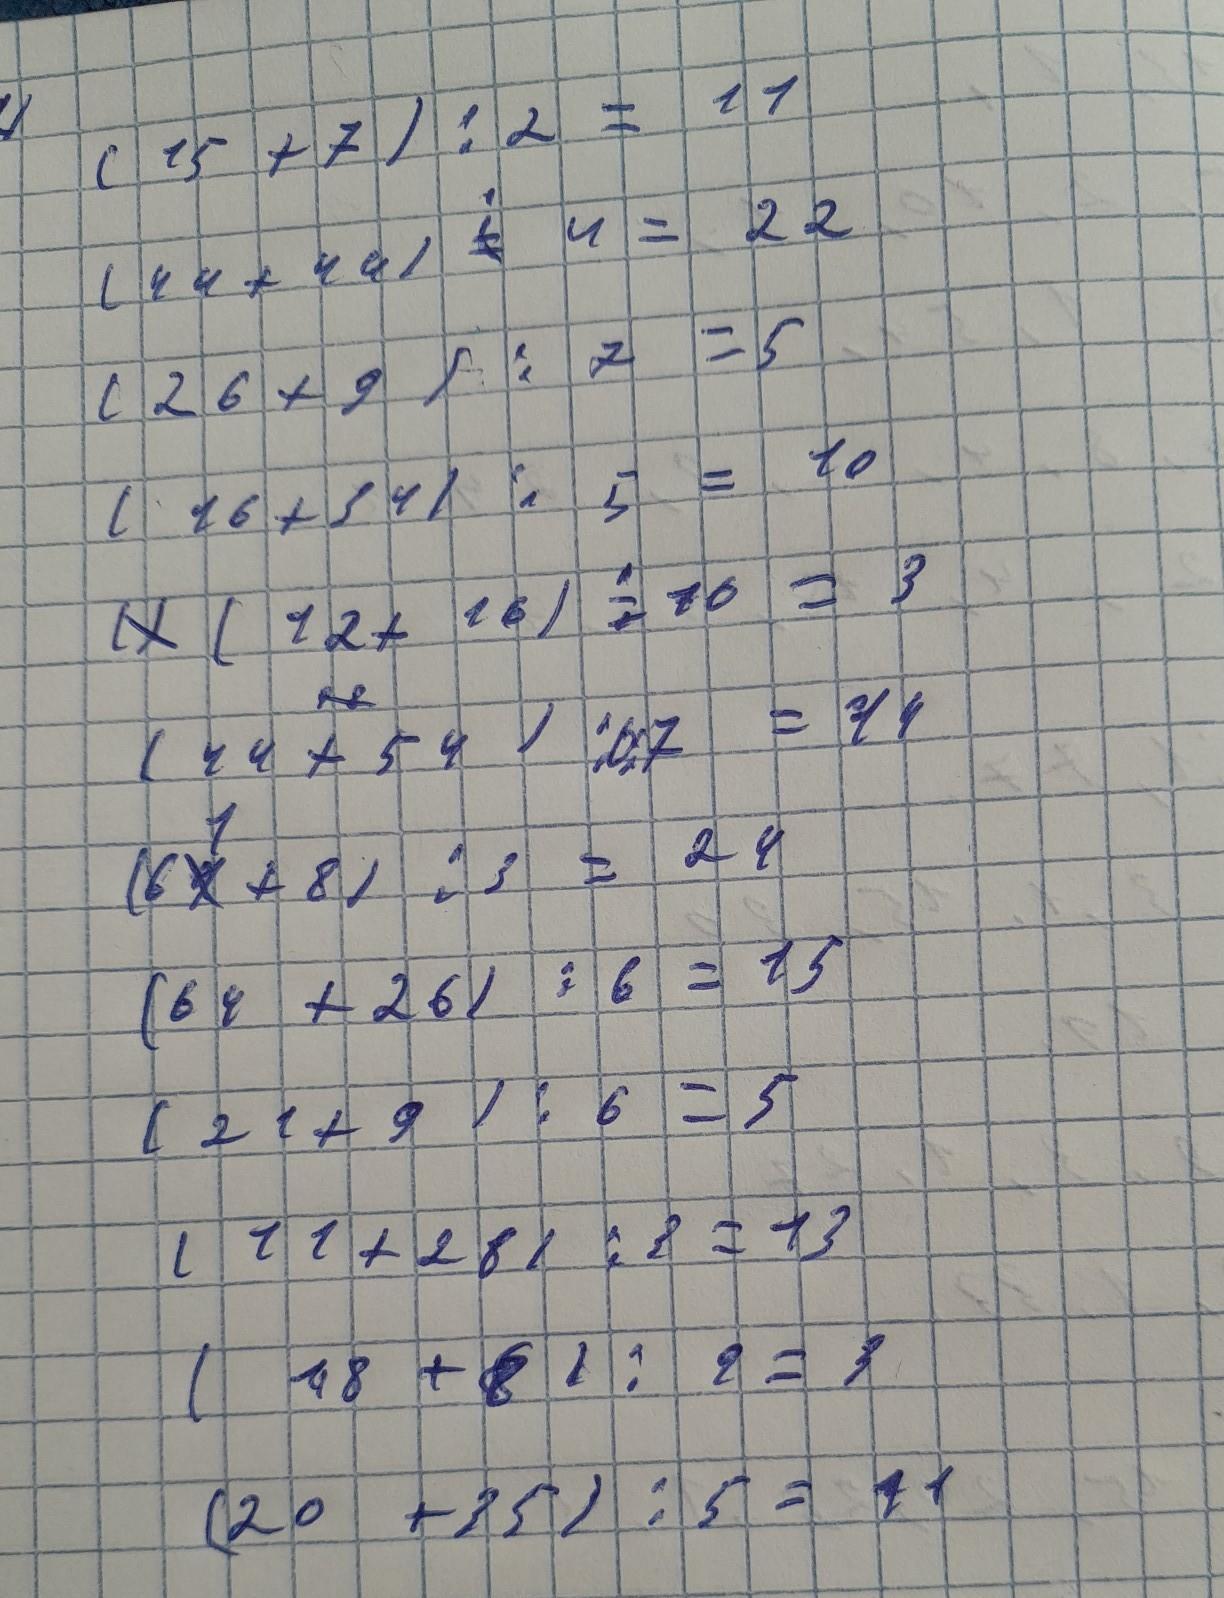 ( 15 + 7 ) : 2 = 11
( 44 + 44 ) : 4 = 22
( 26 + 9 ) : 7 = 5
( 16 + 34 ) : 5 = 10
( 12 + 16 ) : 10 = 3
( 44 + 54 ) : 7 = 14
( 61 + 8 ) : 3 = 24
( 64 + 26 ) : 6 = 15
( 21 + 9 ) : 6 = 5
( 11 + 28 ) : 3 = 13
( 18 + 6 ) : = 3
( 20 + 35 ) : 5 = 11